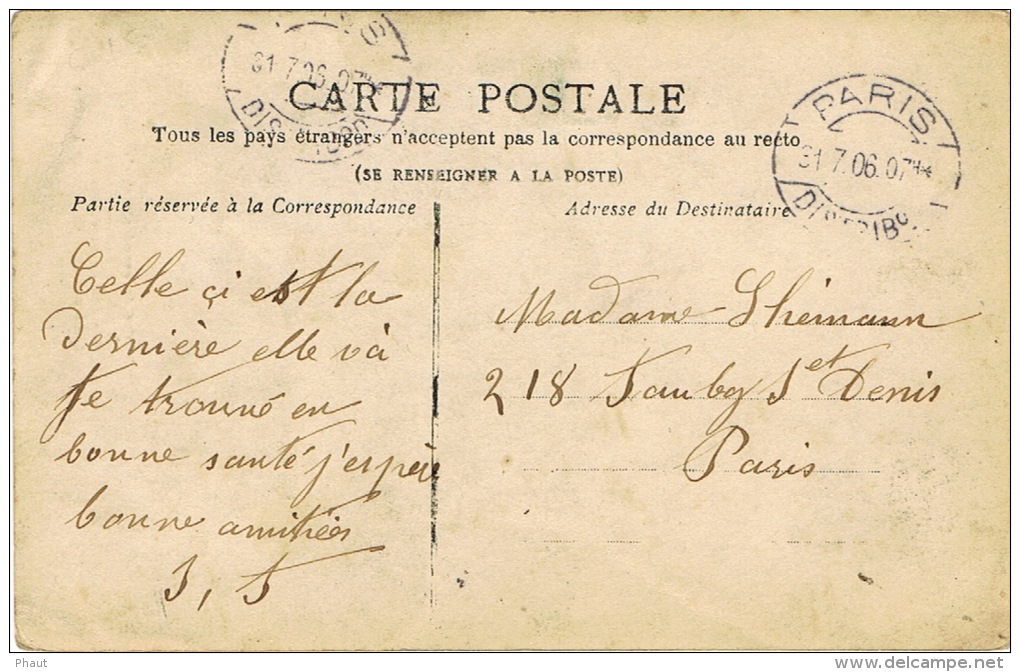 CARTE POSTALE
Tous les pays étrangers n'acceptent pas la correspondance au recto
(SE RENSEIGNER A LA POSTE)
Partie réservée à la Correspondance
Adresse du Destinataire
PARIS
31 7.06.07
DISTRIB
31 7.06.07
Celle çi est la
Dernière elle và
te trouvé en
bonne santé j'espère
bonne amitiées
Madame
218 Faubg St Denis
Paris
Phaut
www.delcampe.net